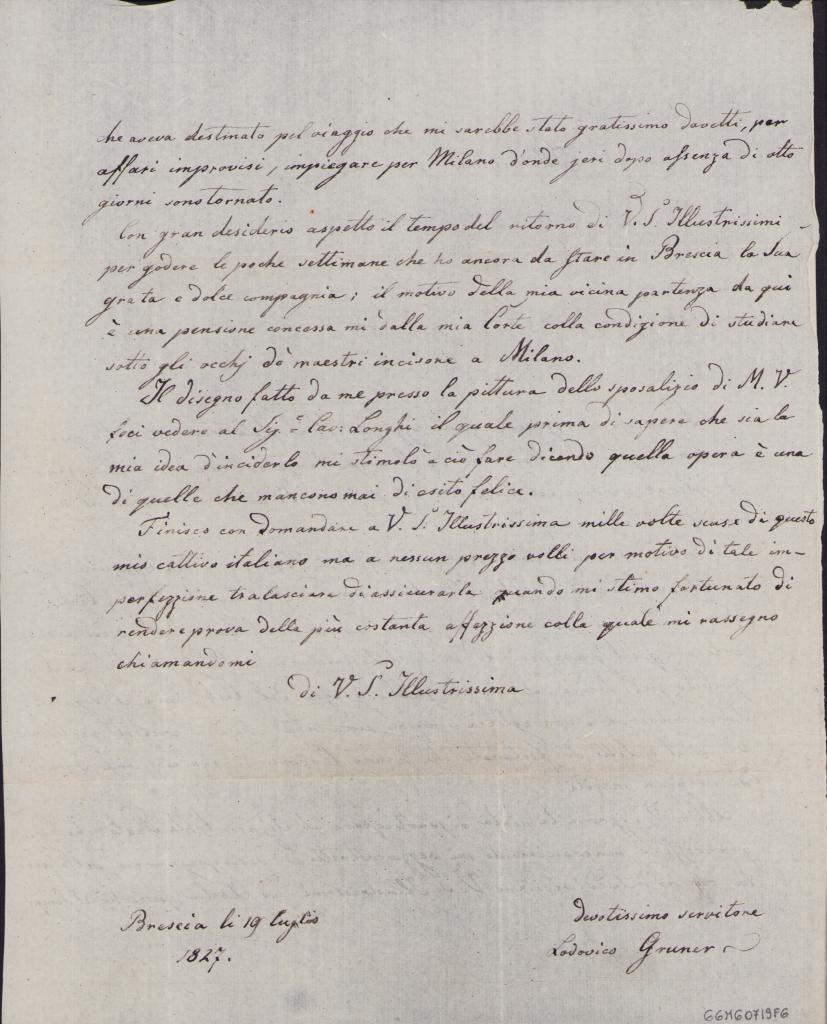 he aveva destinato pel viaggio che mi sarebbe stato gratissimo dovetti, per
affari improvisi, impiegare per Milano d'onde jeri dopo assenza di otto
giorni sono tornato.
Con gran desiderio aspetto il tempo del ritorno di V. S. Illustrissimi-
per godere le poche settimane che ho ancora da stare in Brescia la Sua
grata e dolce compagnia; il motivo della mia vicina partenza da qui
è una pensione concessa mi dalla mia Corte colla condizione di studiare
sotto gli occhj de maestri incisore a Milano.
Il disegno fatto da me presso la pittura dello sposalizio di M. V.
feci vedere al Sig.r Cav: Longhi il quale prima di sapere che sia la
mia idea d'inciderlo mi stimolò a ciò fare dicendo quella opera è una
di quelle che mancono mai di esito felice.
Finisco con domandare a V. S. Illustrissima mille volte scuse di questo
mio cattivo italiano ma a nessun prezzo volli per motivo di tale im-
perfezzione tralasciare di assicurarla quando mi stimo fortunato di
rendere prova della più costanta affezzione colla quale mi rassegno
chiamandomi
di V. S. Illustrissima
Brescia li 19 luglio
1827.
devotissimo servitore
Lodovico Gruner
GGMG0719FG